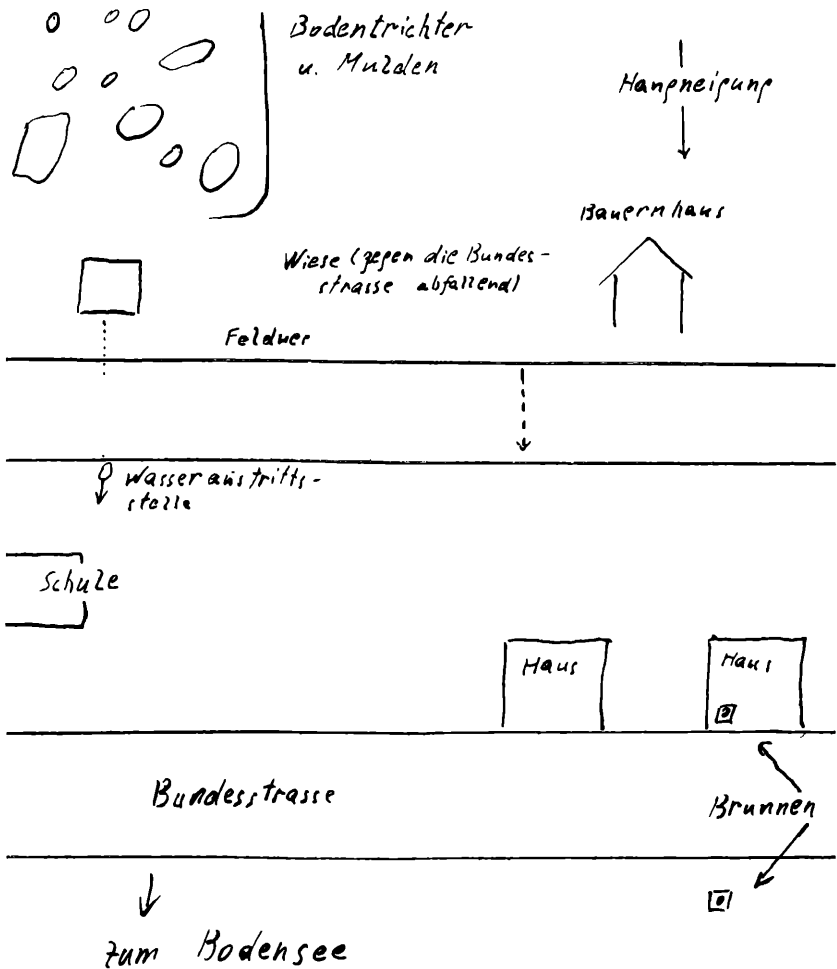 Bodentrichter
u. Mulden
Hangneigung
Bauernhaus
Wiese (gegen die Bundes-
strasse abfallend)
Feldweg
Wasseraustritts-
stelle
Schule
Haus
Haus
Bundesstrasse
Brunnen
zum Bodensee